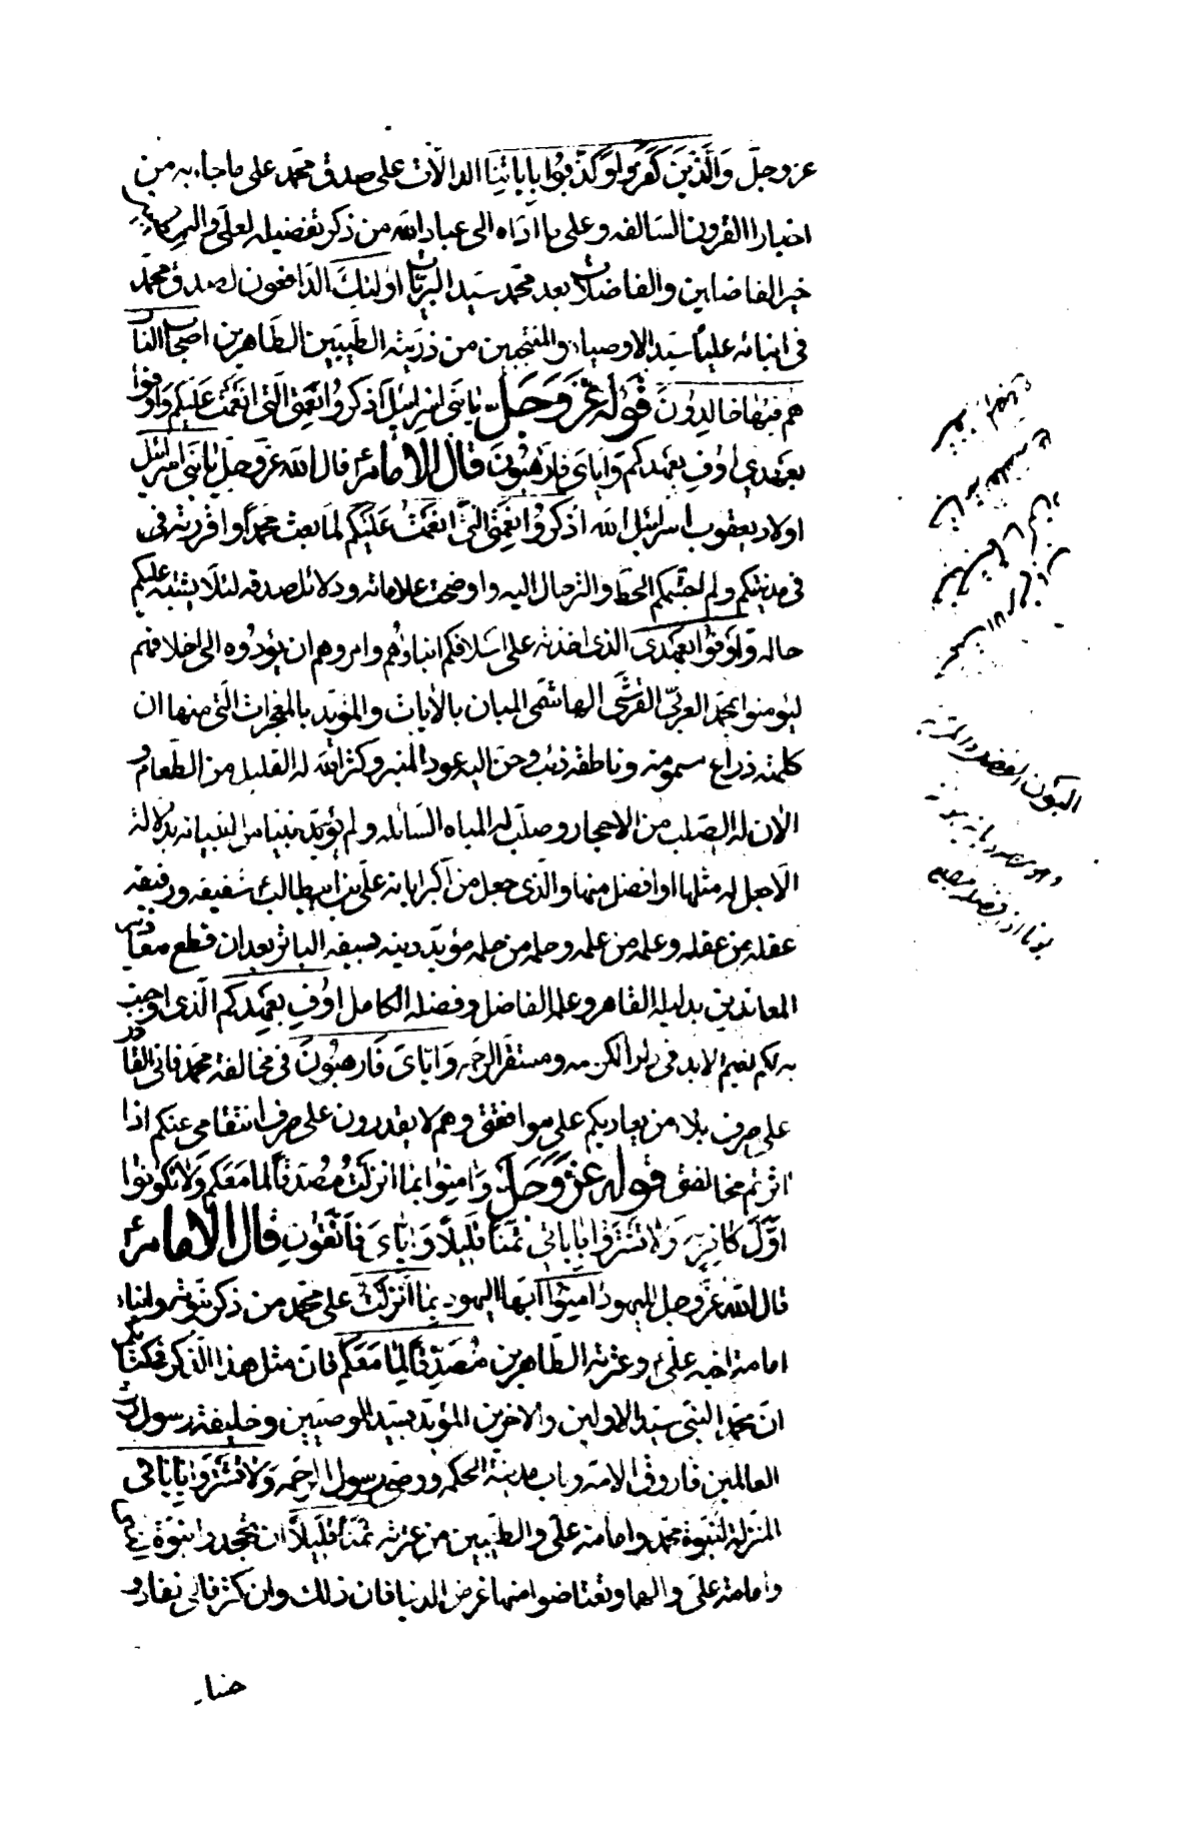 عز وجل وَالَّذِينَ كَفَرُوا وَكَذَّبُوا بِآيَاتِنَا الدالات على صدق محمد على ما جاء به من
اخبار القرون السالفه وعلى ما اداه الى عباد الله من ذكر تفضيله لعلي واله
خير الفاضلين والفاضلات بعد محمد سيد البريات اولئك الدافعون لصدق محمد
في انبائه عليا سيد الاوصياء والمنتجبين من ذريته الطيبين الطاهرين اصحاب النار
هم فيها خالدون قوله عز وجل يا بني اسرائيل اذكروا نعمتي التي انعمت عليكم واوفوا
بعهدي اوف بعهدكم واياى فارهبون قال الامام قال الله عز وجل يا بني اسرائيل
اولاد يعقوب اسرائيل الله اذكروا نعمتي التي انعمت عليكم لما بعث محمدا واقررته في
في مدينتكم ولم اجشمكم الحط والترحال اليه واوضحت علاماته ودلائل صدقه لئلا يشتبه عليكم
حاله واوفوا بعهدى الذى اخذته على اسلافكم انبياؤهم وامروهم ان يؤدوه الى اخلافهم
ليؤمنوا بمحمد العربي القرشى الهاشمى المبان بالآيات والمؤيد بالمعجزات التى منها ان
كلمته ذراع مسمومة وناطقه ذئب وحن اليه عود المنبر وكثر الله له القليل من الطعام و
الان له الصلب من الاحجار وصلب له المياه السائله ولم يؤيد نبيا من انبيائه بدلالة
الا جعل له مثلها او افضل منها والذى جعل من اكبر اياته على بن ابيطالب شقيقه ورفيقه
عقله من عقله وعلمه من علمه وحلمه من حلمه مؤيد دينه بسيفه الباتر بعد ان قطع معاذير
المعاندين بدليله القاهر وعلمه الفاضل وفضله الكامل اوف بعهدكم الذى اوجبت
به لكم نعيم الابد في دار الكرامه ومستقر الرحمه واياى فارهبون في مخالفة محمد فانى القادر
على صرف بلاء من يعاديكم على موافقتى وهم لا يقدرون على صرف انتقامى عنكم اذا
اثرتم مخالفتى قوله عز وجل وَآمِنُوا بما انزلت مصدقا لما معكم ولا تكونوا
اول كافر به ولا تشتروا باياتى ثمنا قليلا واياى فاتقون قال الامام
قال الله عز وجل لليهود امنوا ايها اليهود بما انزلت على محمد من ذكر نبوته وانباء
امامة اخيه على وعترته الطاهرين مصدقا لما معكم فان مثل هذا الذكر في كتابكم
ان محمد النبى سيد الاولين والاخرين المؤيد بسيد الوصيين وخليفة رسول رب
العالمين فاروق الامة وباب مدينة الحكمه ووصى رسول الرحمه ولا تشتروا باياتى
المنزلة لنبوة محمد وامامة على والطيبين من عترته ثمنا قليلا ان تجحدوا نبوة
وامامة على والهما وتعتاضوا منها عرض الدنيا فان ذلك وان كثر فالى نفاد و